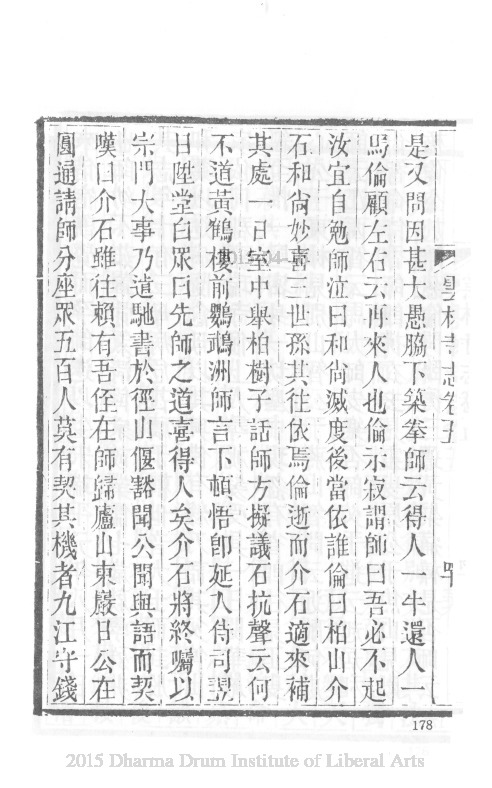 雲林寺志卷五
是又問因甚大愚脇下築拳師云得人一牛還人一
馬倫顧左右云再來人也倫示寂謂師曰吾必不起
汝宜自勉師泣曰和尙滅度後當依誰倫曰柏山介
石和尙妙喜三世孫其往依焉倫逝而介石適來補
其處一日室中舉柏樹子話師方擬議石抗聲云何
不道黃鶴樓前鸚鵡洲師言下頓悟卽延入侍司翌
日陞堂白眾曰先師之道喜得人矣介石將終囑以
宗門大事乃遣馳書於徑山偃谿聞公聞與語而契
嘆曰介石雖往賴有吾侄在師歸廬山東巖日公在
圓通請師分座眾五百人莫有契其機者九江守錢
178
2015 Dharma Drum Institute of Liberal Arts